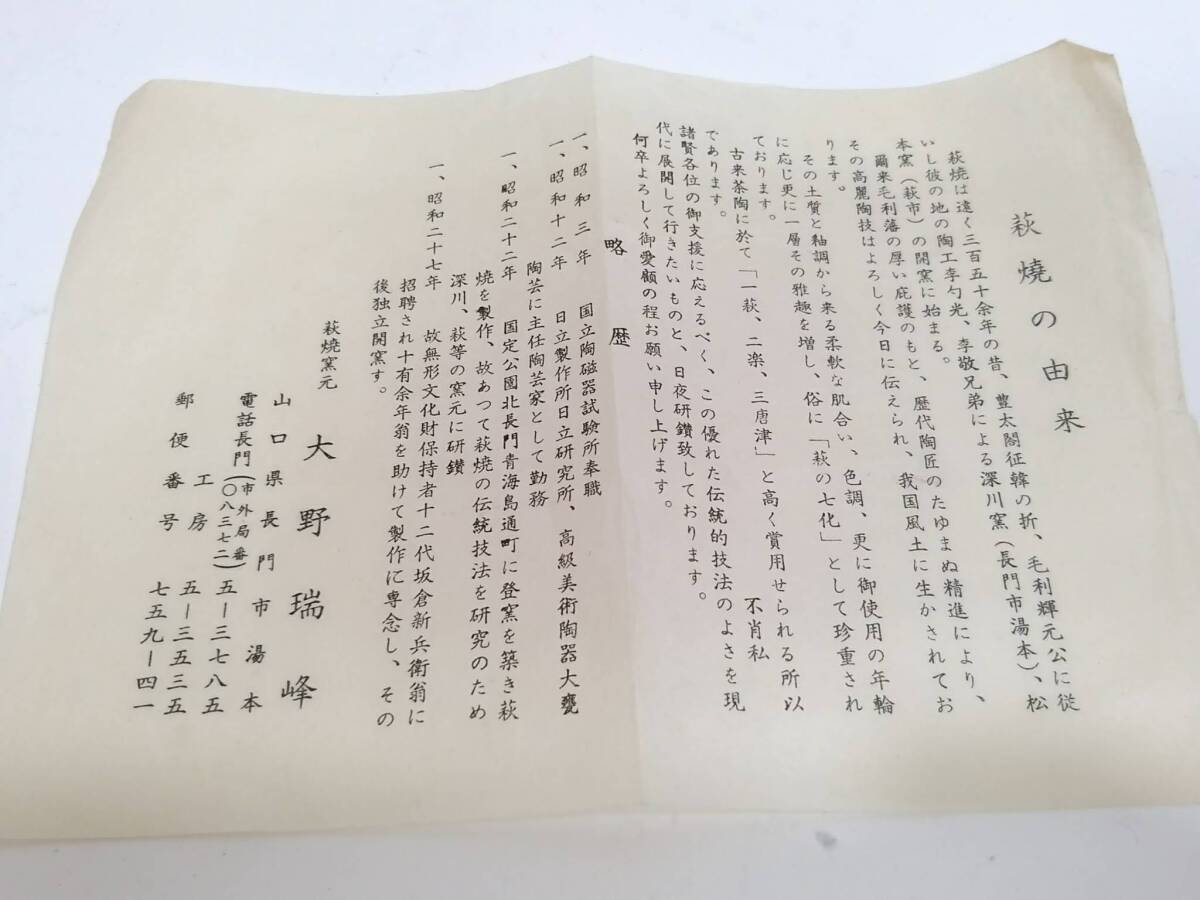 萩焼の由来
萩焼は遠く三百五十余年の昔、豊太閤征韓の折、毛利輝元公に従
いし彼の地の陶工李勺光、李敬兄弟による深川窯(長門市湯本)、松
本窯(萩市)の開窯に始まる。
爾来毛利藩の厚い庇護のもと、歴代陶匠のたゆまぬ精進により、
その高麗陶技はよろしく今日に伝えられ、我国風土に生かされてお
ります。
その土質と釉調から来る柔軟な肌合い、色調、更に御使用の年輪
に応じ更に一層その雅趣を増し、俗に「萩の七化」として珍重され
ております。
古来茶陶に於て「一萩、二楽、三唐津」と高く賞用せられる所以
であります。 不肖私
諸賢各位の御支援に応えるべく、この優れた伝統的技法のよさを現
代に展開して行きたいものと、日夜研鑽致しております。
何卒よろしく御愛顧の程お願い申し上げます。
略歴
一、昭和三年 国立陶磁器試験所奉職
一、昭和十二年 日立製作所日立研究所、高級美術陶器大甕
陶芸に主任陶芸家として勤務
一、昭和二十二年 国定公園北長門青海島通町に登窯を築き萩
焼を製作、故あつて萩焼の伝統技法を研究のため
深川、萩等の窯元に研鑽
一、昭和二十七年 故無形文化財保持者十二代坂倉新兵衛翁に
招聘され十有余年翁を助けて製作に専念し、その
後独立開窯す。
萩焼窯元
大野瑞峰
山口県長門市湯本
電話長門(市外局番〇八三七二)五―三七八五
工房 五―三五三五
郵便番号 七五九―四一